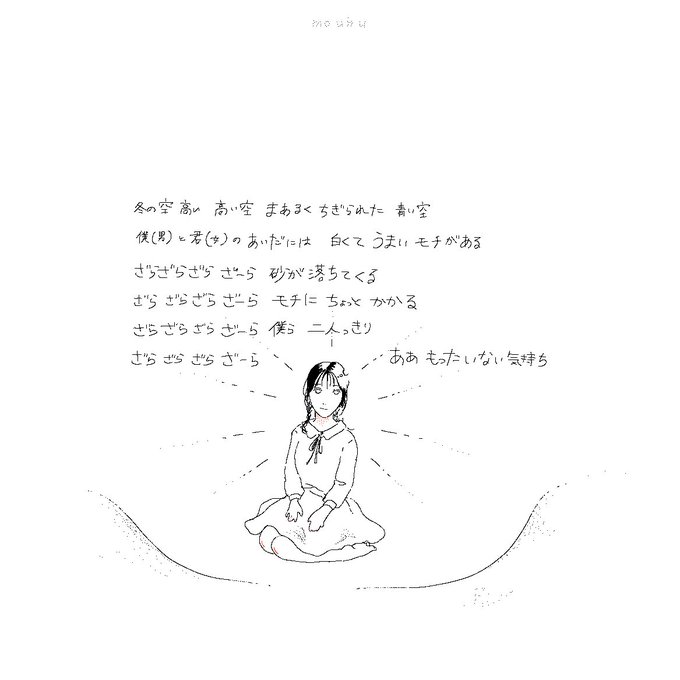 mouhu
冬の空 高い 高い空 まあるく ちぎられた 青い空
僕(男)と君(女)の あいだには 白くて うまい モチがある
ざらざらざら ざーら 砂が落ちてくる
ざら ざら ざら ざーら モチに ちょっと かかる
ざら ざら ざら ざーら 僕ら 二人っきり
ざら ざら ざら ざーら ああ もったいない気持ち